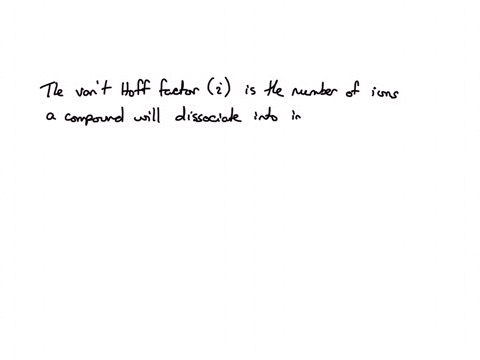 The van't Hoff factor (i) is the number of ions
a compound will dissociate into in